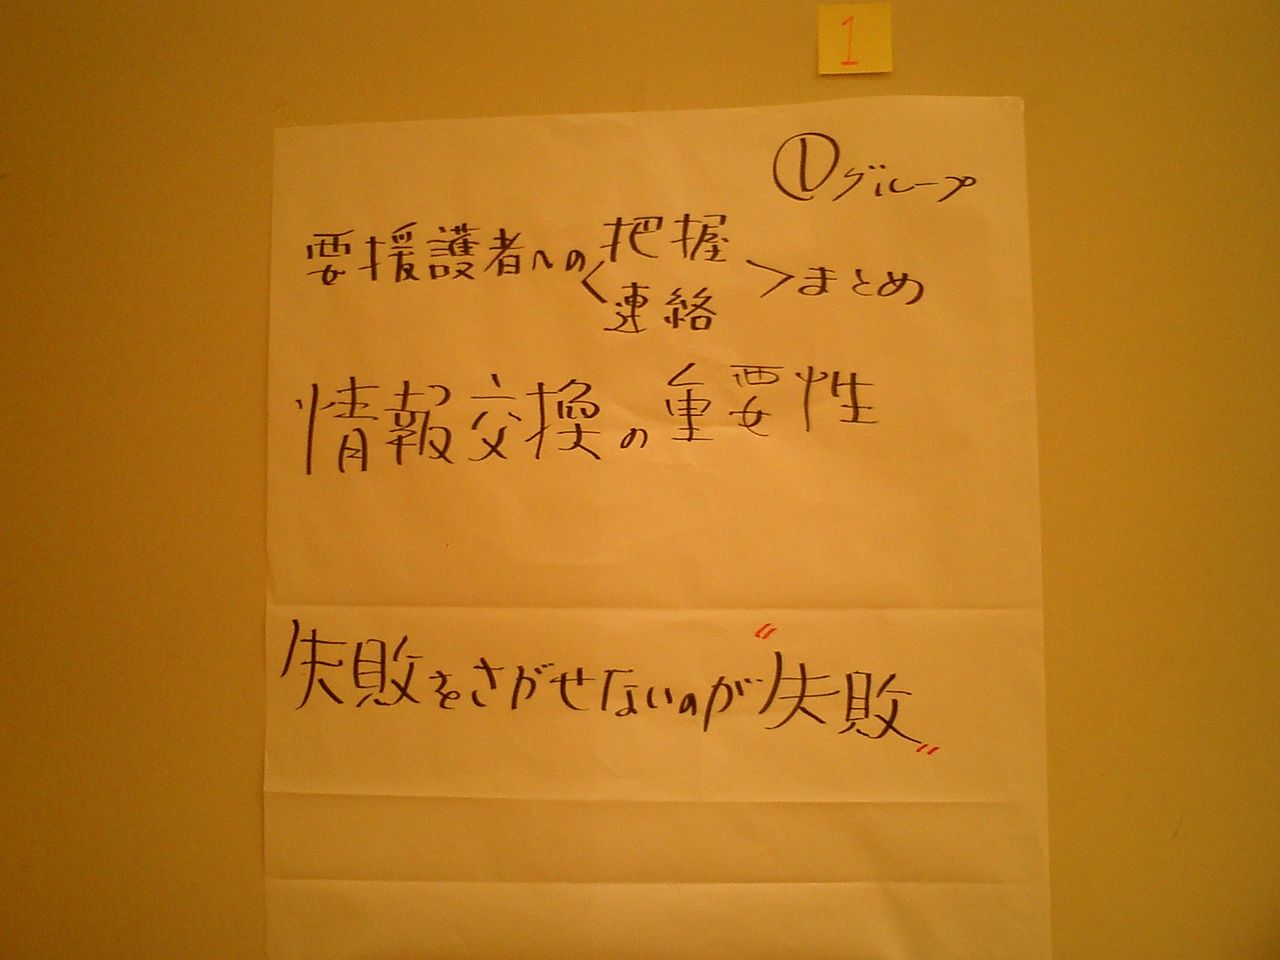 1
①グループ
要援護者への<把握 連絡>まとめ
情報交換の重要性
失敗をさがせないのが〝失敗〟